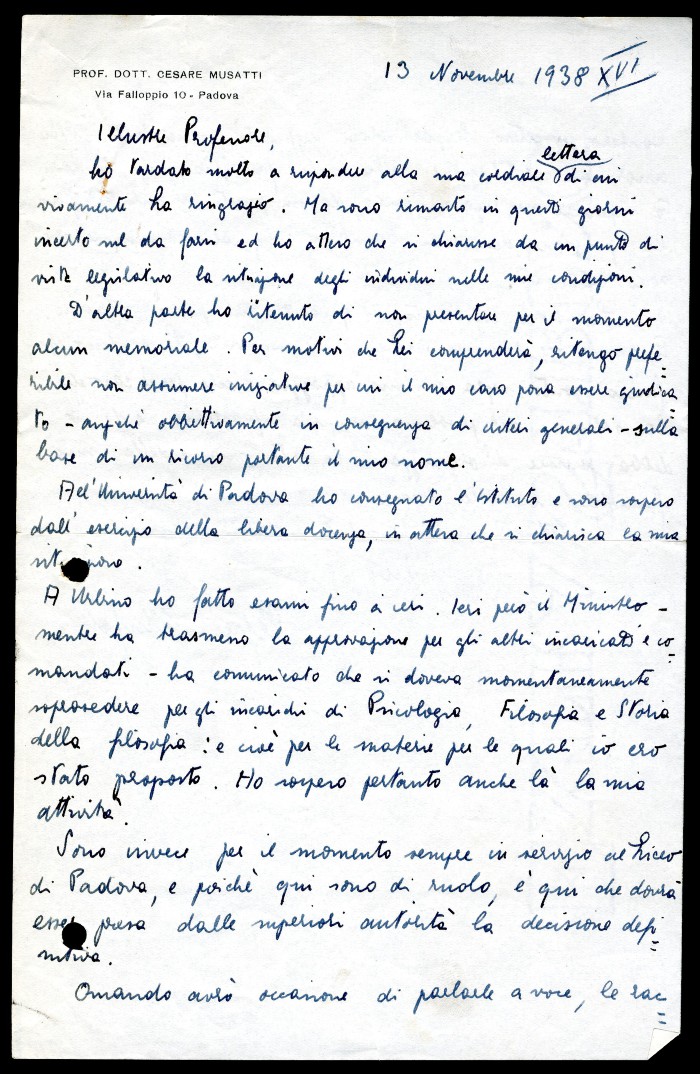 PROF. DOTT. CESARE MUSATTI
Via Falloppio 10 - Padova
13 Novembre 1938 XVI
Illustre Professore,
lettera
ho tardato molto a rispondere alla sua cordiale di cui
vivamente La ringrazio. Ma sono rimasto in questi giorni
incerto sul da farsi ed ho atteso che si chiarisse da un punto di
vista legislativo la situazione degli individui nelle mie condizioni.
D'altra parte ho ritenuto di non presentare per il momento
alcun memoriale. Per motivi che Lei comprenderà, ritengo prefe=
ribile non assumere iniziative per cui il mio caso possa essere giudica=
to - anziché obbiettivamente in conseguenza di criteri generali - sulla
base di un ricorso portante il mio nome.
All'Università di Padova ho consegnato l'istituto e sono sospeso
dall'esercizio della libera docenza, in attesa che si chiarisca la mia
situazione.
A Urbino ho fatto esami fino a ieri. Ieri però il Ministero -
mentre ha trasmesso la approvazione per gli altri incaricati e co=
mandati - ha comunicato che si doveva momentaneamente
soprassedere per gli incarichi di Psicologia, Filosofia e Storia
della filosofia: e cioè per le materie per le quali io ero
stato proposto. Ho sospeso pertanto anche là la mia
attività.
Sono invece per il momento sempre in servizio al Liceo
di Padova, e poiché qui sono di ruolo, è qui che dovrà
esser presa dalle superiori autorità la decisione defi=
nitiva.
Quando avrò occasione di parlarle a voce, le rac=